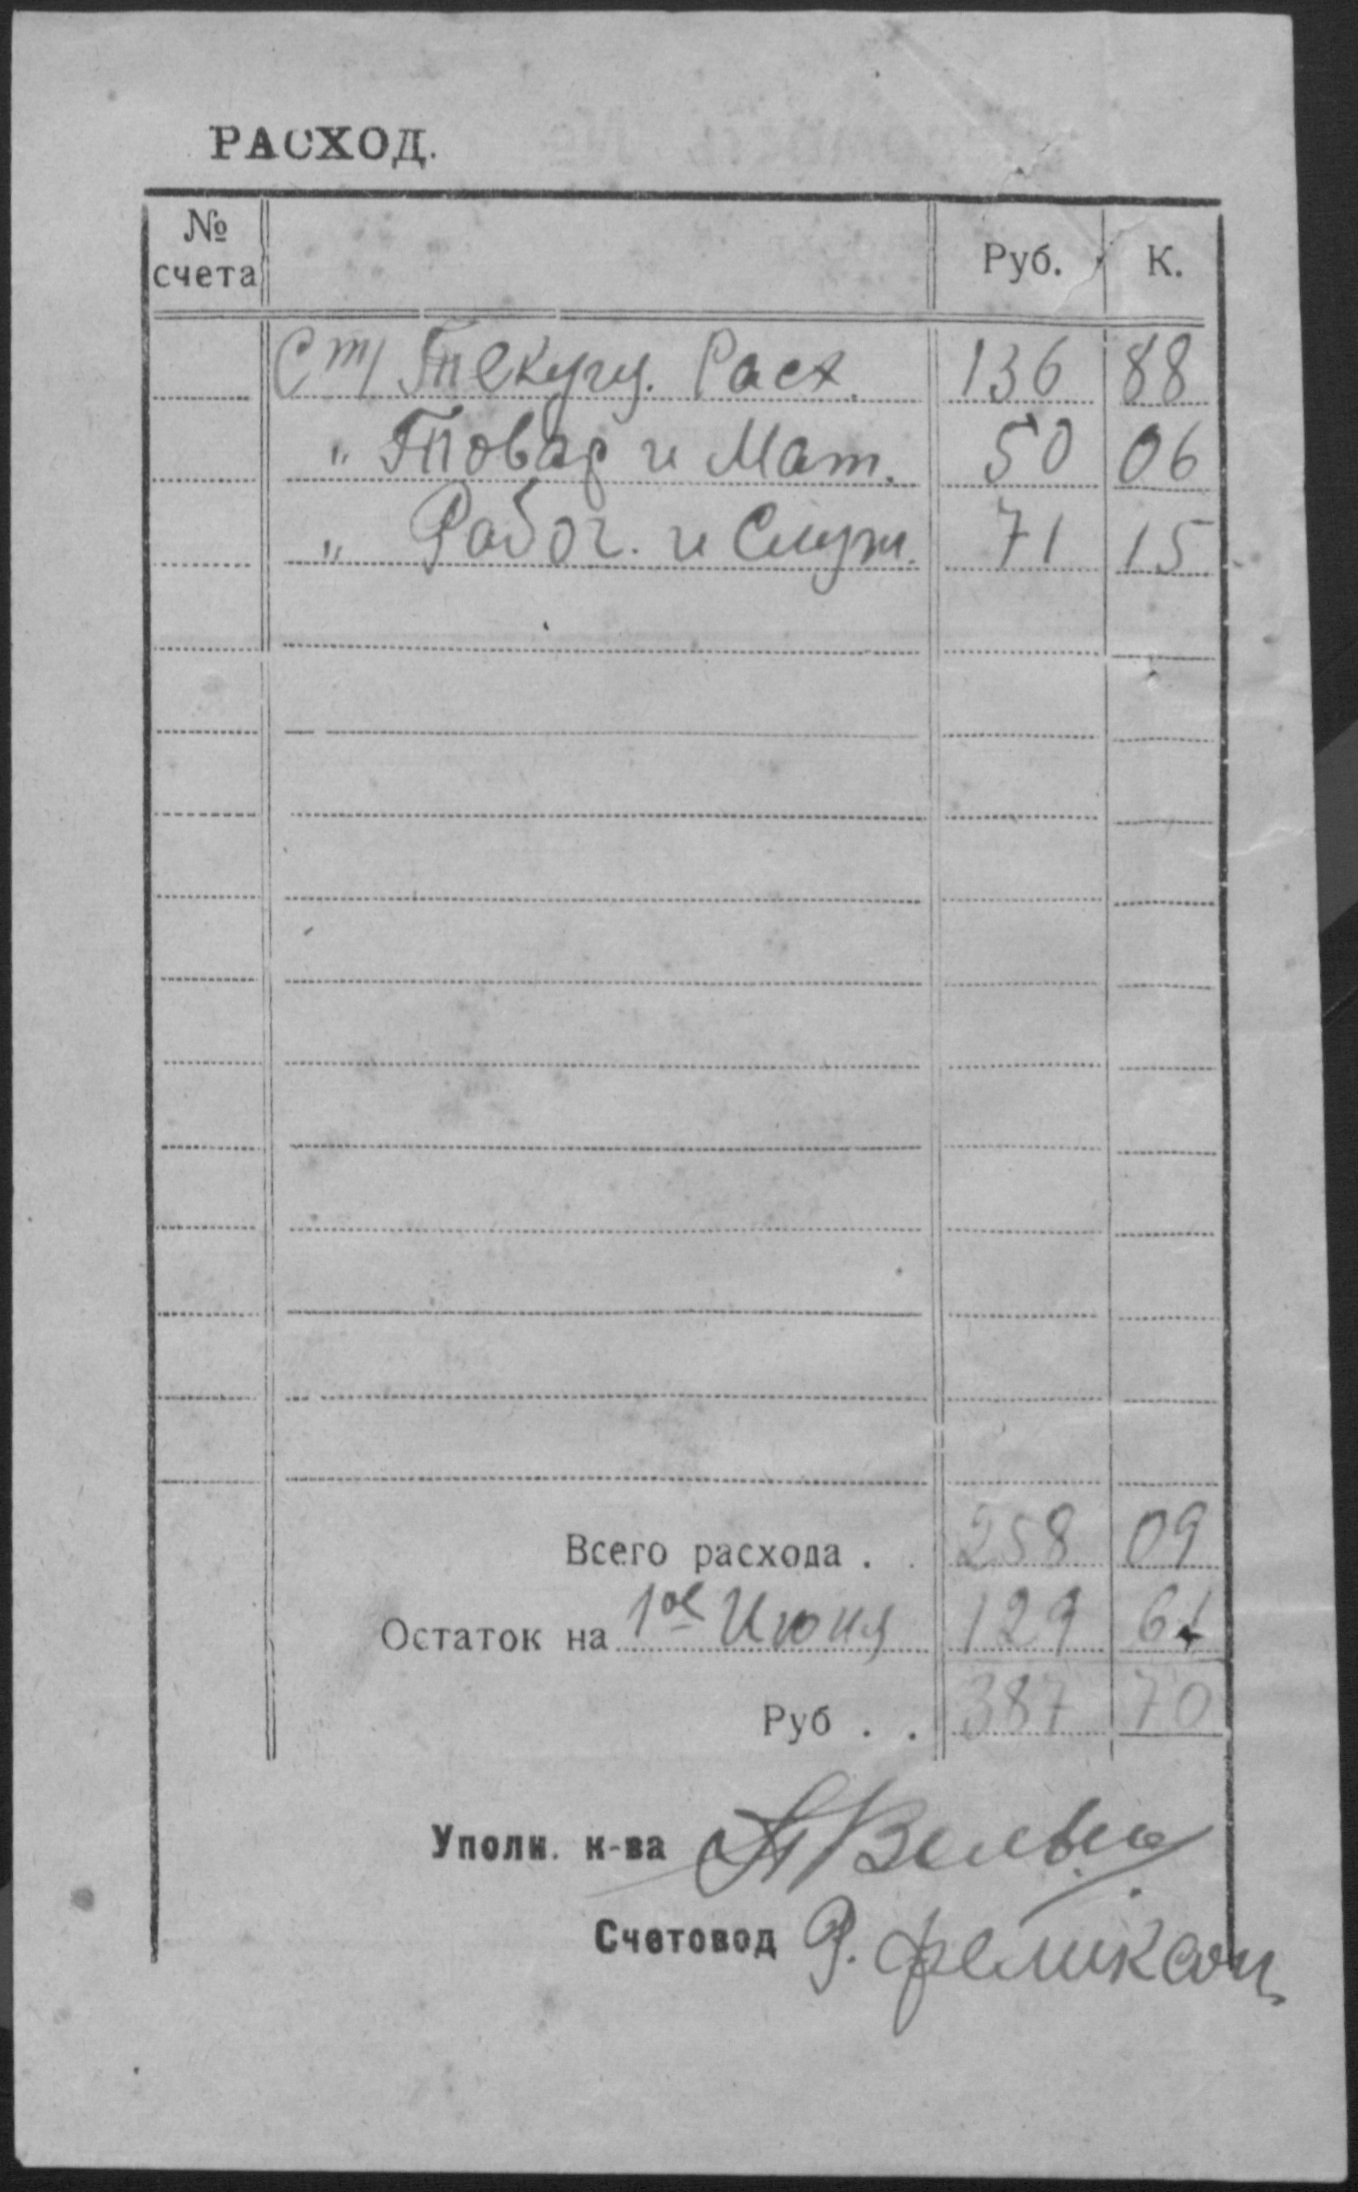 РАСХОД.
№ счета Руб. К.
Ст/ Текущ. Расх. 136 88
" Товар и Мат. 50 06
" Рабоч. и Служ. 71 15
Всего расхода . . 258 09
Остаток на 1ое Июня 129 61
Руб . . 387 70
Уполн. к-ва
Счетовод